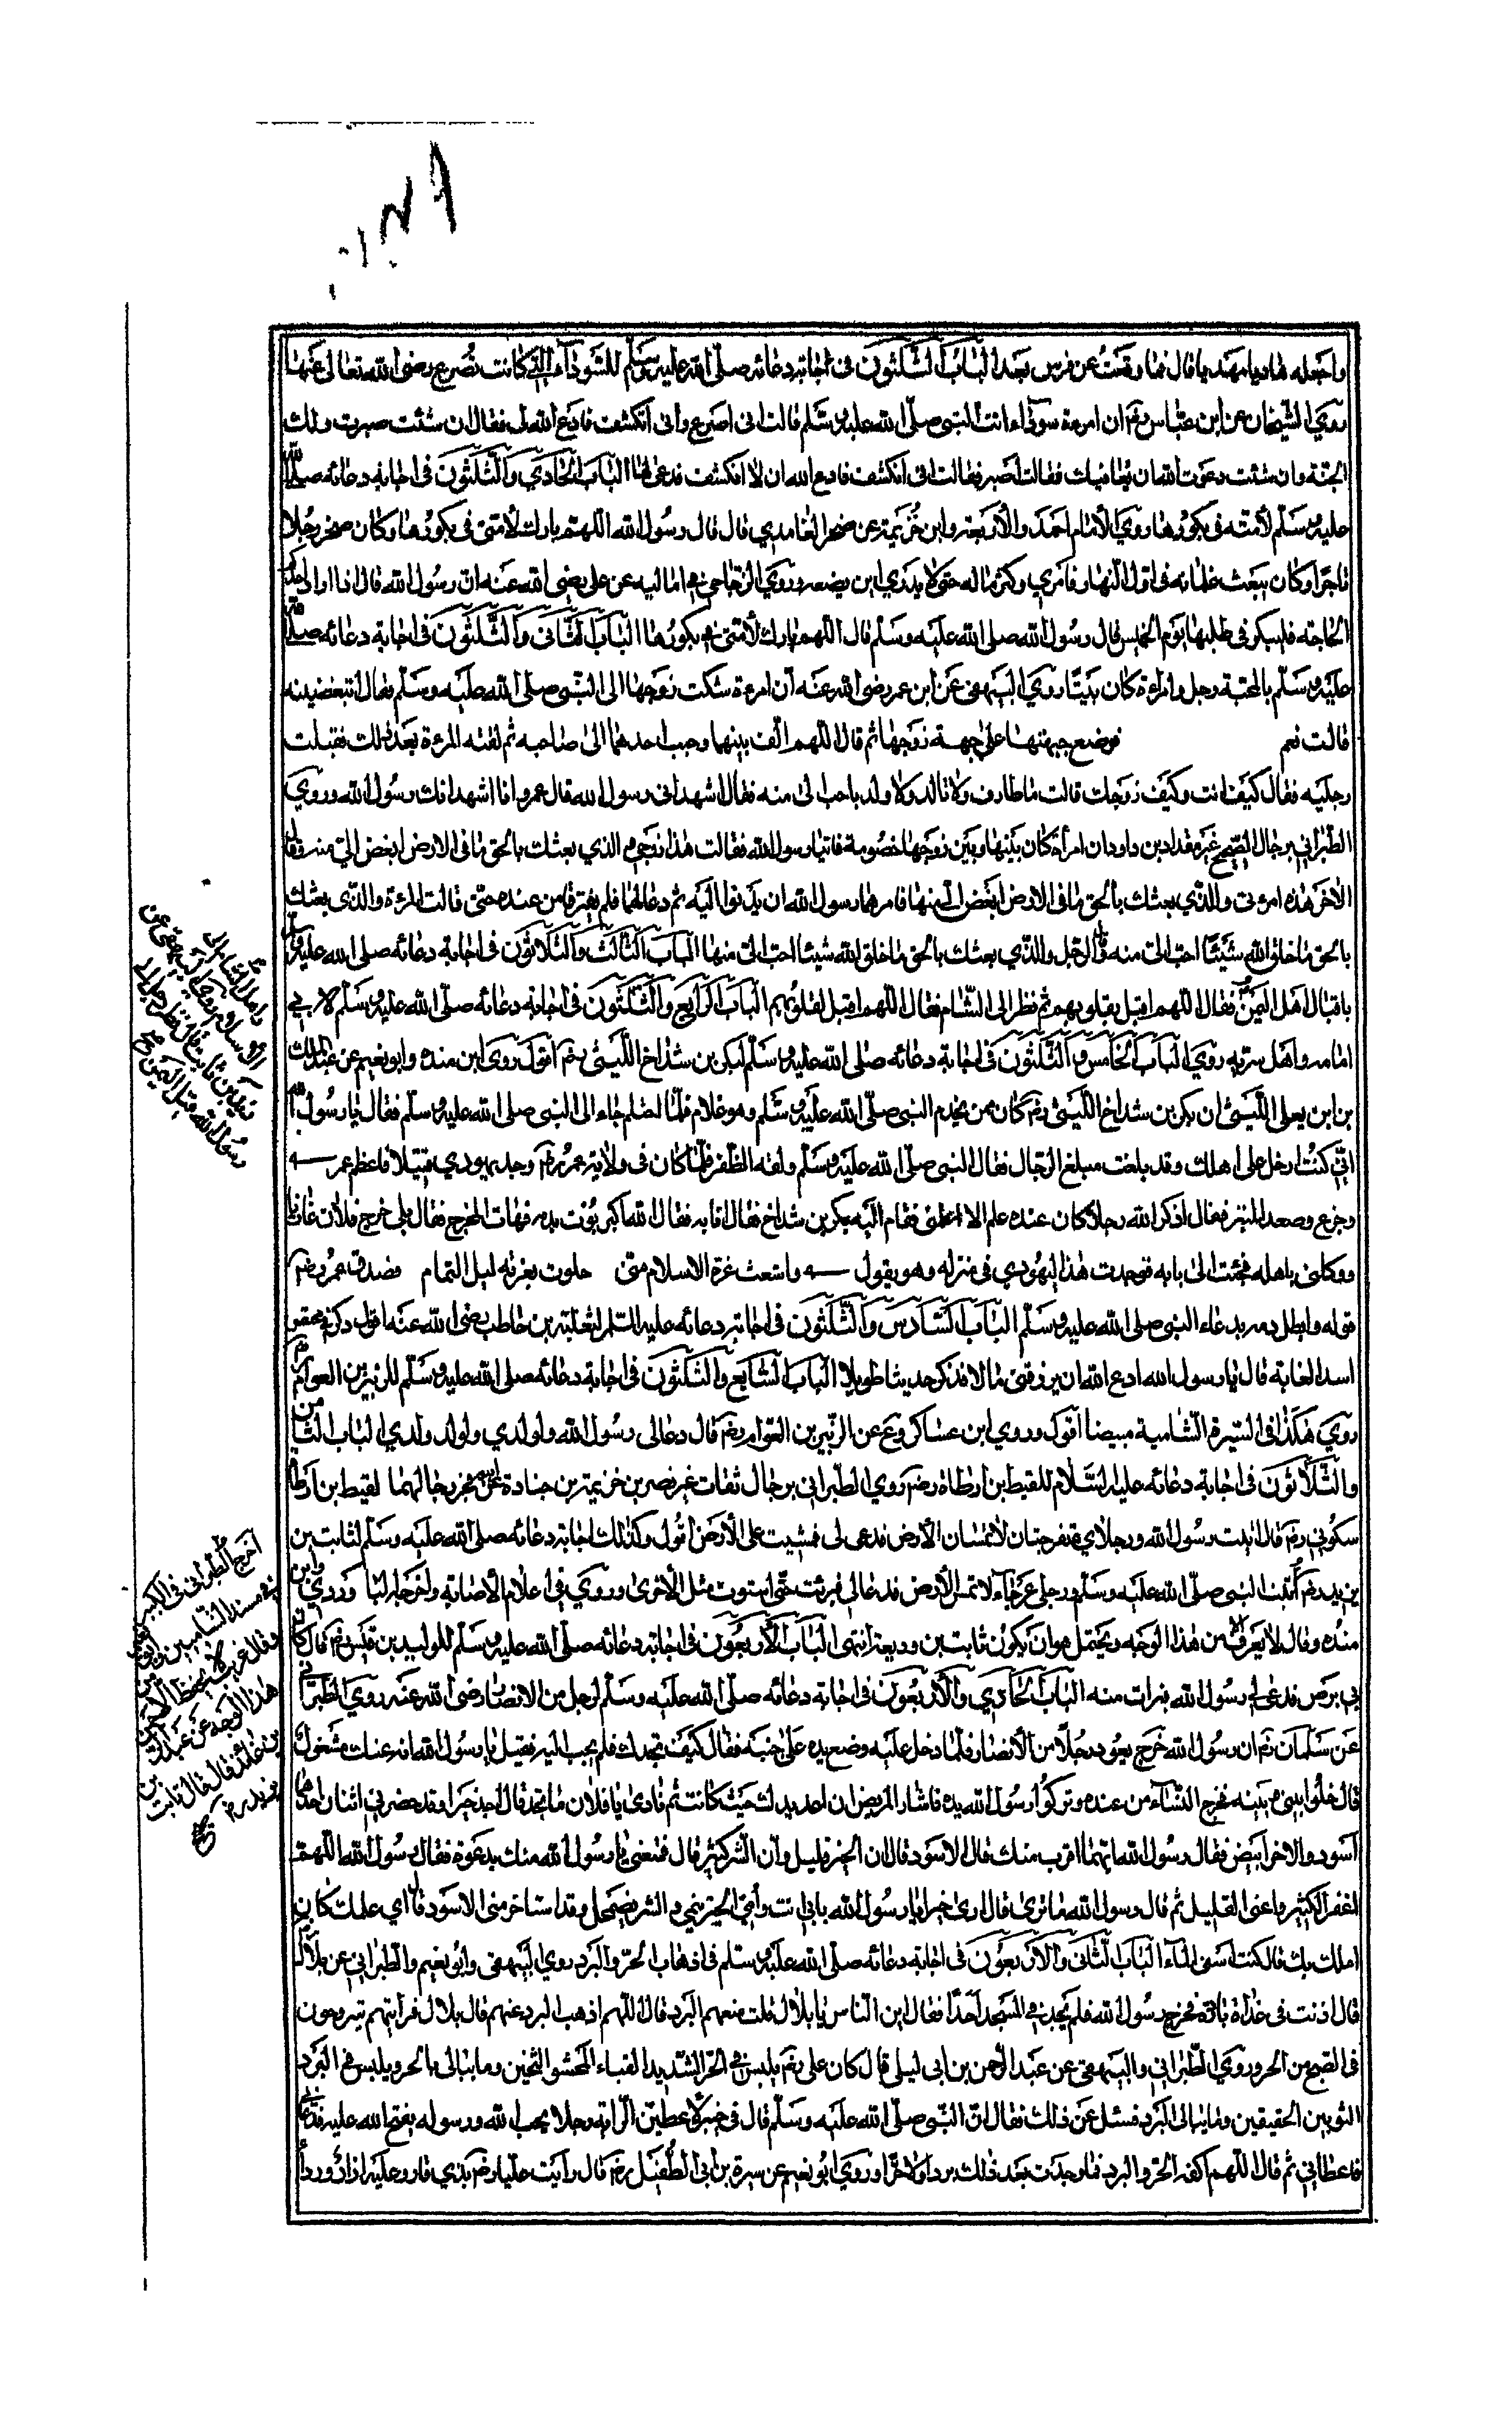 واجعله هاديا مهديا قال فما وقعت عن فرس بعد الباب الثلثون في اجابة دعائه صلى الله عليه وسلم للسوداء التي كانت تصرع رضى الله تعالى عنها
روى الشيخان عن ابن عباس رضم ان امرءة سوداء اتت النبى صلى الله عليه وسلم قالت انى اصرع وانى اتكشف فادع الله لى فقال ان شئت صبرت ولك
الجنة وان شئت دعوت الله ان يعافيك فقالت اصبر فقالت انى اتكشف فادع الله ان لا اتكشف فدعى لها الباب الحادي والثلثون في اجابة دعائه صلى الله
عليه وسلم لامته في بكورها روى الامام احمد والاربعة وابن خزيمة عن صخر الغامدي قال قال رسول الله اللهم بارك لامتى في بكورها وكان صخر رجلا
تاجرا وكان يبعث غلمانه في اول النهار فاثري وكثر ماله حتى لا يدري اين يضعه وروى الزجاجي في اماليه عن على رضى الله عنه ان رسول الله قال اذا اراد احدكم
الحاجة فليبكر في طلبها يوم الخميس قال رسول الله صلى الله عليه وسلم قال اللهم بارك لامتى في بكورها الباب الثانى والثلثون في اجابة دعائه صلى الله
عليه وسلم بالمحبة رجل وامراءة كان بينا روى البيهقى عن ابن عمر رضى الله عنه ان امرءة شكت زوجها الى النبى صلى الله عليه وسلم فقال اتبغضينه
قالت نعم فوضع جبهتها على جبهة زوجها ثم قال اللهم الف بينهما وحبب احدهما الى صاحبه ثم لقته المرءة بعد ذلك فقبلت
رجليه فقال كيف انت وكيف زوجك قالت ما طارف ولا تالد ولا ولد باحب الى منه فقال اشهد انى رسول الله قال عمر وانا اشهد انك رسول الله وروى
الطبراني برجال الصحيح غير مقداد بن داود ان امراة كان بينها وبين زوجها خصومة فاتيا رسول الله فقالت هذا زوجي والذي بعثك بالحق ما في الارض ابغض الي منه وقال
الاخر هذه امرءتى والذي بعثك بالحق ما في الارض ابغض الي منها فامرهما رسول الله ان يدنوا اليه ثم دعا لهما فلم يفترقا من عنده حتى قالت المرءة والذي بعثك
بالحق ما خلق الله شيئا احب الى منه وقال الرجل والذي بعثك بالحق ما خلق الله شيئا احب الى منها الباب الثالث والثلاثون في اجابة دعائه صلى الله عليه وسلم
باقبال اهل اليمن فقال اللهم اقبل بقلوبهم ثم نظر الى الشام فقال اللهم اقبل بقلوبهم الباب الرابع والثلثون في اجابة دعائه صلى الله عليه وسلم لابي
امامه واهل سريه روي الباب الخامس والثلثون في اجابة دعائه صلى الله عليه وسلم لبكر بن شداخ الليثى رضم اقول روى ابن منده وابو نعيم عن عبد الملك
بن ابن يعلى الليثى ان بكر بن شداخ الليثى رضم كان ممن يخدم النبى صلى الله عليه وسلم وهو غلام فلما احتلم جاء الى النبى صلى الله عليه وسلم فقال يا رسول الله
انى كنت ادخل على اهلك وقد بلغت مبلغ الرجال فقال النبى صلى الله عليه وسلم ولقه الظفر فلما كان في ولاية عمر رضم وجد يهودي قتيلا فاعظم عمر
وجزع وصعد المنبر فقال اذكر الله رجلا كان عنده علم الا اعلمنى فقام اليه بكر بن شداخ فقال انا به فقال الله اكبر بؤت بدمه فهات المخرج فقال بلى خرج فلان غازيا
ووكلنى باهله فجئت الى بابه فوجدت هذا اليهودي في منزله وهو يقول واشعث غره الاسلام منى خلوت بعرسه ليل التمام فصدق عمر رضم
قوله وابطل دمه بدعاء النبى صلى الله عليه وسلم الباب السادس والثلثون في اجابة دعائه عليه السلام لثعلبة بن حاطب رضى الله عنه اقول
اسد الغابة قال يا رسول الله ادع الله ان يرزقنى مالا فذكر حديثا طويلا الباب السابع والثلثون في اجابة دعائه صلى الله عليه وسلم للزبير بن العوام رضم
روى هكذا في السيرة الشامية مبيضا اقول وروى ابن عساكر عن الزبير بن العوام رضم قال دعا لى رسول الله ولولدي ولولد ولدي الباب الثامن
والثلاثون في اجابة دعائه عليه السلام للقيط بن ارطاة رضم روى الطبرانى برجال ثقات غير نصر بن خزيمة بن جنادة لقيط بن ارطاة
سكوني رضم قال اتيت رسول الله ورجلاي لا تمسان الارض فدعى لى فمشيت على الارض اقول وكذلك اجابة دعائه صلى الله عليه وسلم لثابت بن
بن يزيد رضم اتيت النبى صلى الله عليه وسلم ورجلي عرجاء لا تمس الارض فدعا لى فبرئت حتى استوت مثل الاخرى وروى في اعلام الاصابة وروى وابن
منده وقال لا يعرف الا من هذا الوجه ويحتمل هو ان يكون ثابت بن وديعة انتهى الباب الاربعون في اجابة دعائه صلى الله عليه وسلم للوليد بن قيس رضم قال كان
بي برص فدعى لي رسول الله فبرات منه الباب الحادي والاربعون في اجابة دعائه صلى الله عليه وسلم لرجل من الانصار رضى الله عنه روى الطبراني
عن سلمان رضم ان رسول الله خرج يعود رجلا من الانصار فلما دخل عليه وضع يده على جبينه فقال كيف تجدك فلم يجب اليه فقيل يا رسول الله انه عنك مشغول
قال خلوا بينى وبينه فخرج النساء من عنده وتركوا رسول الله يده فاشار المريض ان اعد يدك حيث كانت ثم نادى يا فلان ما تجد قال اجد خيرا وقد حضرني اثنان احدهما
اسود والاخر ابيض فقال رسول الله ايهما اقرب منك قال الاسود قال ان الخير قليل وان الشر كثير قال فمتعنى يا رسول الله منك بدعوة فقال رسول الله اللهم
اغفر الكثير واغنى القليل ثم قال رسول الله ما ترى قال ارى خيرا يا رسول الله بابي انت وامي الخير ينمي والشر يضمحل وقد استاخر منى الاسود قال اي عملك كان
املك بك قال كنت اسقى الماء الباب الثانى والاربعون في اجابة دعائه صلى الله عليه وسلم في اذهاب الحر والبرد روى البيهقى وابو نعيم والطبراني عن بلال
قال اذنت في غداة باردة فخرج رسول الله فلم يجد في المسجد احدا فقال اين الناس يا بلال قلت منعهم البرد قال اللهم اذهب البرد عنهم قال بلال فرايتهم يتروحون
في الصبح من الحر وروى الطبراني والبيهقى عن عبد الرحمن بن ابى ليلى قال كان على رضم يلبس في الحر الشديد القباء المحشو الثخين وما يبالى بالحر ويلبس في البرد
الثوبين الخفيفين وما يبالى البرد فسئل عن ذلك فقال ان النبى صلى الله عليه وسلم قال في خيبر لاعطين الراية رجلا يحب الله ورسوله يفتح الله عليه فدعاني
فاعطاني ثم قال اللهم اكفه الحر والبرد فما وجدت بعد ذلك بردا ولا حرا وروى ابو نعيم عن سبرة بن ابى الطفيل رضم قال رايت عليا رضم بذي قار وعليه ازار ورداء
واهل الشام
زيد بن ثابت قال نظر رسول الله
رسول الله قبل اليمن
اخرج الطبرانى في الكبير
في مسند الشاميين وابو نعيم
وقال غريب لا يحفظ الا من
هذا الوجه عن عبد الرحمن
بن عائذ قال قال ثابت بن
يزيد رضم